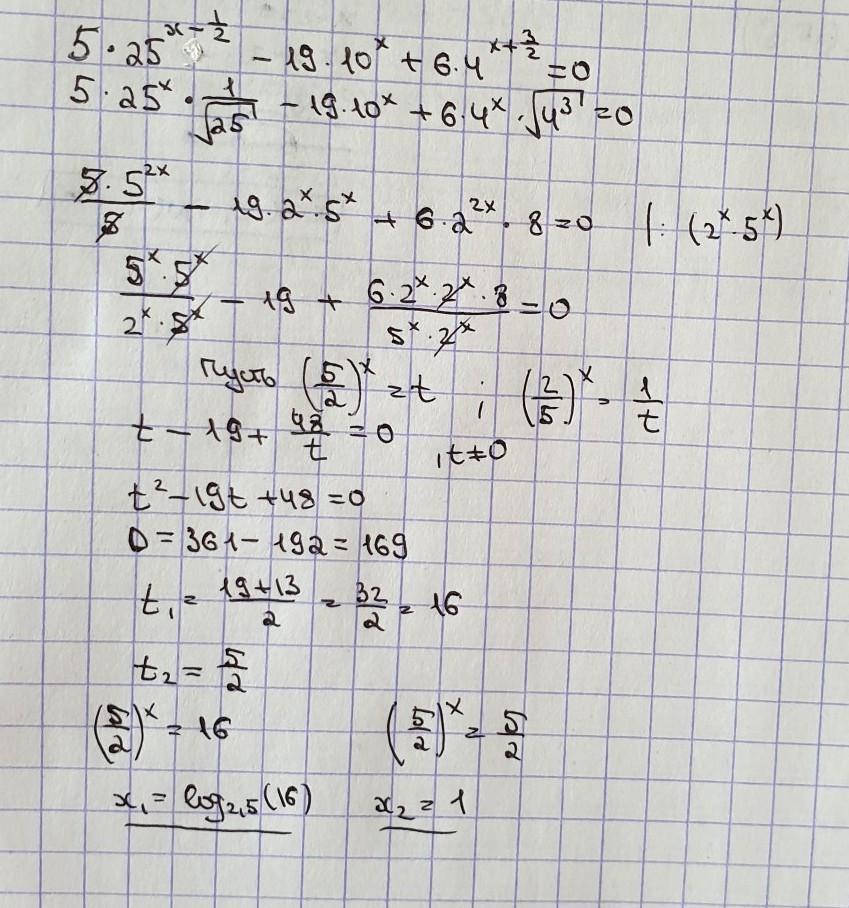 5 · 25^{x - 1/2} - 19 · 10^x + 6 · 4^{x + 3/2} = 0
5 · 25^x · 1/√25 - 19 · 10^x + 6 · 4^x · √4^3 = 0
5 · 5^{2x}/5 - 19 · 2^x · 5^x + 6 · 2^{2x} · 8 = 0 |: (2^x · 5^x)
5^x · 5^x/2^x · 5^x - 19 + 6 · 2^x · 2^x · 8/5^x · 2^x = 0
Пусть (5/2)^x = t ; (2/5)^x = 1/t
t - 19 + 48/t = 0 , t ≠ 0
t^2 - 19t + 48 = 0
D = 361 - 192 = 169
t_1 = 19 + 13/2 = 32/2 = 16
t_2 = 5/2
(5/2)^x = 16 (5/2)^x = 5/2
x_1 = log_{2,5}(16) x_2 = 1